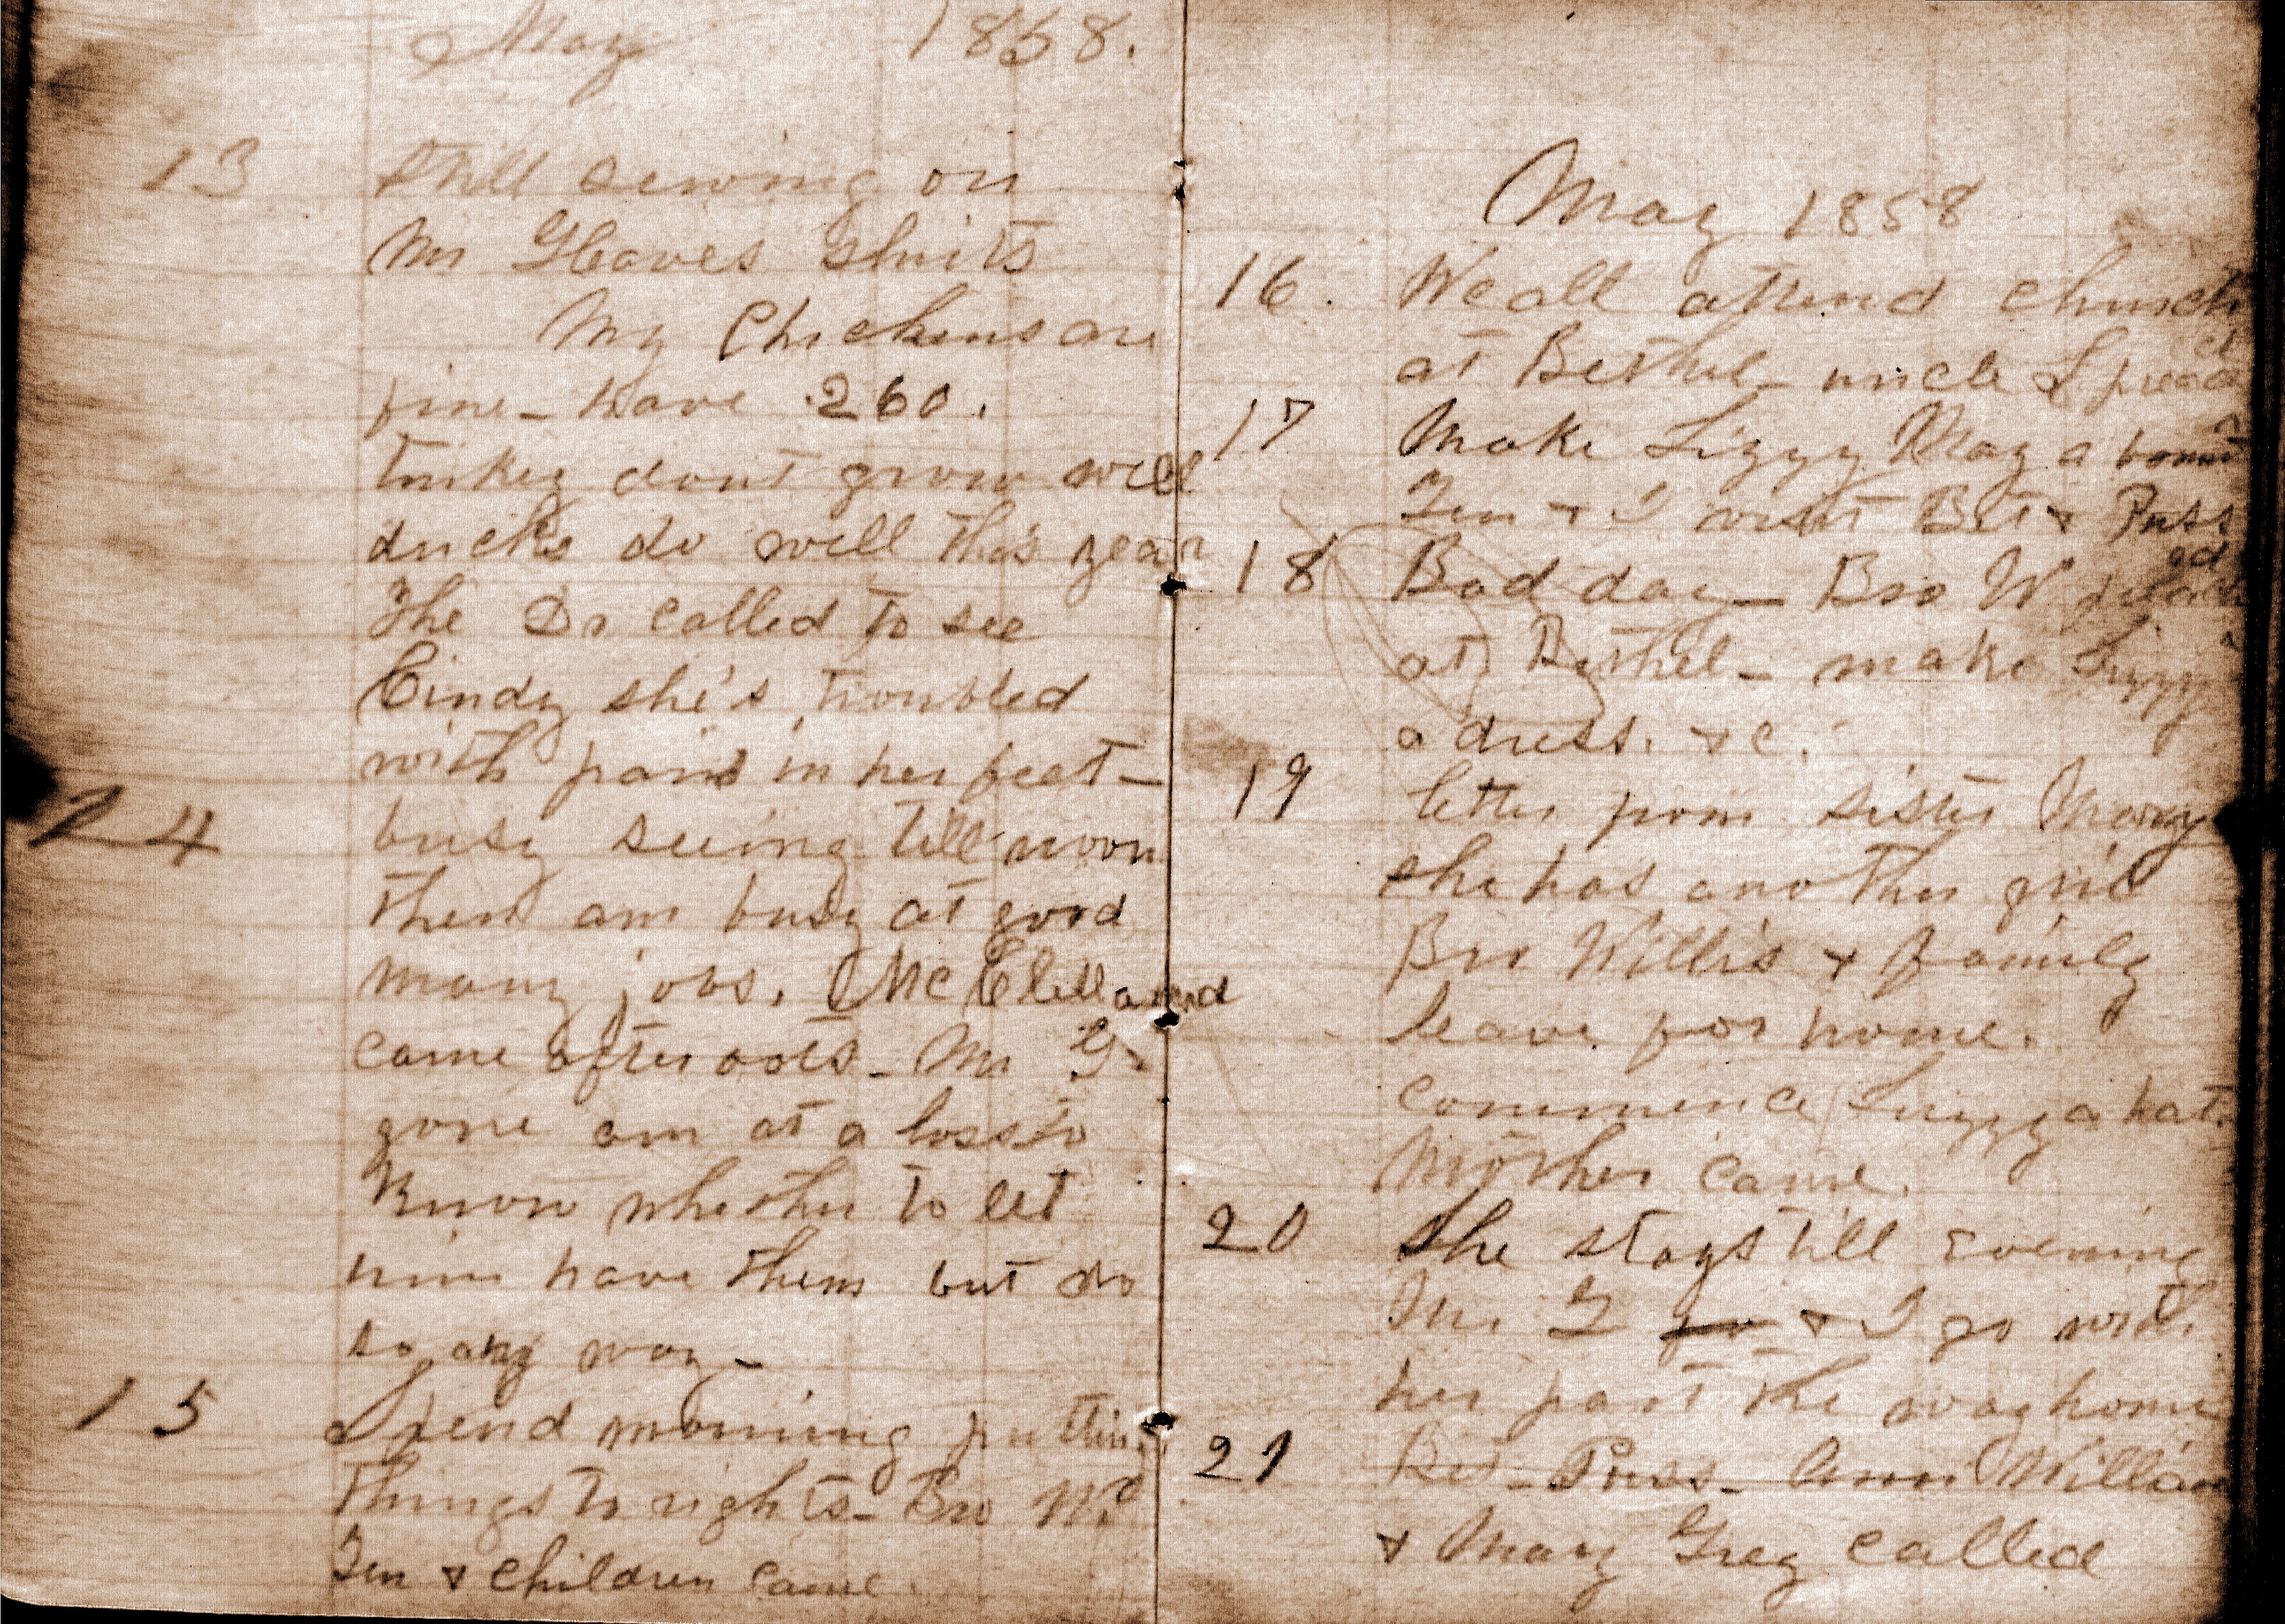 May 1858.
13 still sewing on
Mr Gleaves shirts
My Chickens are
fine - have 260.
turkey dont grow well
ducks do well this year
The Dr called to see
Cindy she's troubled
with pains in her feet -
24 busy seeing till noon
then am busy at good
many jobs. McClelland
came after oats - Mr G.
gone am at a loss to
know whether to let
him have them but do
so any way -
15 Spend morning putting
things to rights - Bro Wd
Jen & children came.
May 1858
16. We all attend church
at Bethel - uncle S preach
17 Make Lizzy May a bonnet
Jen & I visit Bet & Puss
18 Bad day - Bro W preached
at Bethel - make Lizzy
a dress. &c.
19 letter from sister Mary
she has another girl
Bro Willis & family
leave for home.
commence Lizzy a hat.
Mother came.
20 She stays till evening
Mr. G & I go with
her part the way home
21 Bet - Puss - Ann William
& Mary Greg called